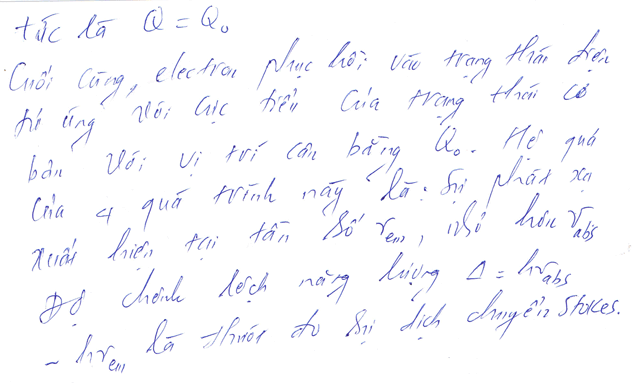 tức là Q = Q₀
Cuối cùng, electron phục hồi vào trạng thái điện
tử ứng với cực tiểu của trạng thái cơ
bản với vị trí cân bằng Q₀. Hệ quả
của 4 quá trình này là: Sự phát xạ
xuất hiện tại tần số ν_em, nhỏ hơn ν_abs
Độ chênh lệch năng lượng Δ = hν_abs
- hν_em là thước đo sự dịch chuyển Stokes.